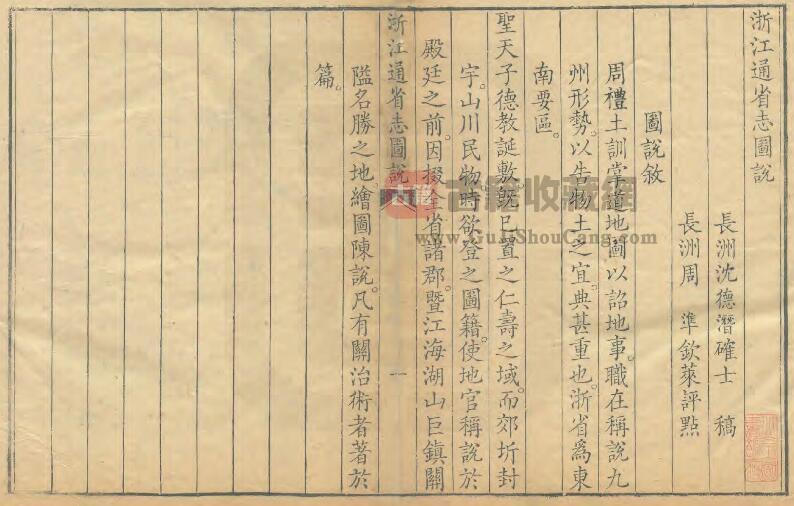 浙江通省志圖說
長洲沈德潛確士　稿
長洲周　準欽萊評點
圖說敘
周禮土訓掌道地圖以詔地事。職在稱說九
州形勢。以告物土之宜。典甚重也。浙省爲東
南要區。
聖天子德教誕敷。旣已置之仁壽之域。而郊圻封
宇。山川民物。時欲登之圖籍。使地官稱說於
殿廷之前。因掇全省諸郡。曁江海湖山巨鎮關
浙江通省志圖說　一
隘名勝之地。繪圖陳說。凡有關治術者著於
篇。
古籍 古籍收藏網
www.GuJiShouCang.com